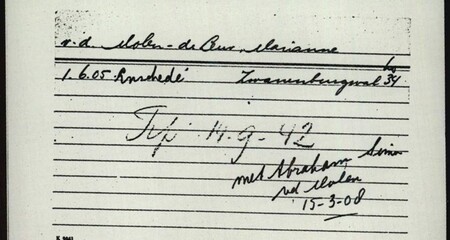 v.d. Molen - de Beur, Marianne
1.6.05 Enschedé Zwanenburgwal 34 hs
Tŕ 14-9-42
met Abraham Simon
vd Molen
15-3-08